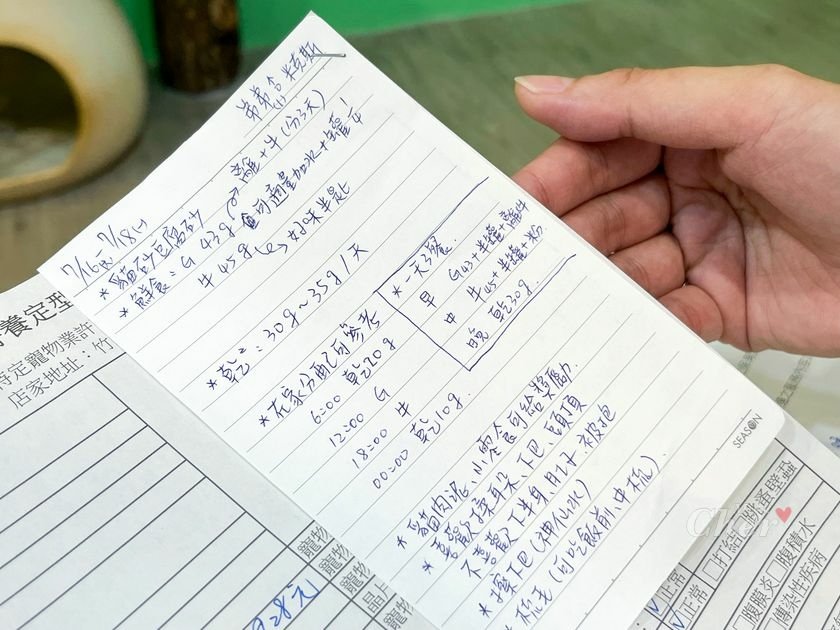 弟弟
7/16 7/18
*貓砂豆腐砂
*鮮食:G 43g 離+牛(分3天)
牛45g 可適量加水+半罐
*乾:30g~35g/天
*在家分配可參考
6:00 乾20g
12:00 G
18:00 牛
00:00 乾10g
*一天3餐
早 G43+半罐+離牛
中 牛45+半罐+粉
晚 乾30g
*貓肉泥、小零食可給獎勵
*喜歡摸身朵、下巴、頭頂
不喜歡下半身、肚子、被抱
*擦下巴(神仙水)
*梳毛(可吃飯前、中梳)
SEASON
養定型
特定寵物業許
店家地址:竹
寵物
寵物
寵物
晶
28元
正常
正常
打結
跳蚤壁蝨
腹膜炎
腹積水
傳染性疾病